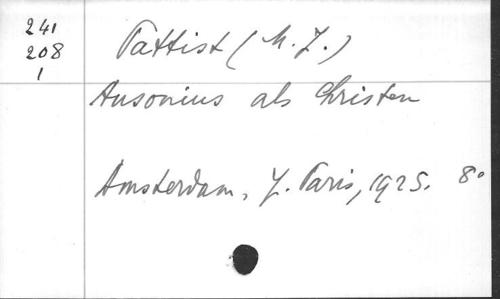 241
208
1
Pattist (M. J.)
Ausonius als Christen
Amsterdam, J. Paris, 1925. 8°